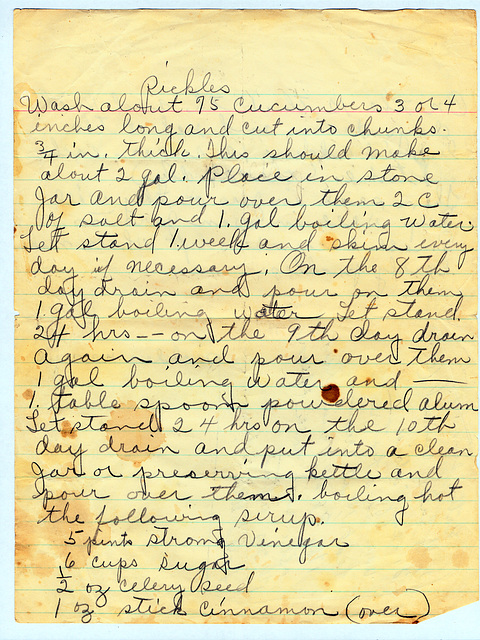 Pickles
Wash about 75 cucumbers 3 or 4
inches long and cut into chunks.
3/4 in. thick. This should make
about 2 gal. Place in stone
Jar and pour over them 2 C
of salt and 1. gal boiling water.
Let stand 1. week and skim every
day if necessary. On the 8th
day drain and pour on them
1. gal boiling water Let stand.
24 hrs -- on the 9th day drain
again and pour over them
1 gal boiling water and —
1. table spoon powdered alum
Let stand 24 hrs on the 10th
day drain and put into a clean
Jar or preserving kettle and
pour over them. boiling hot
the following sirup.
5 pints strong Vinegar
6 cups sugar
1/2 oz celery seed
1 oz stick cinnamon (over)